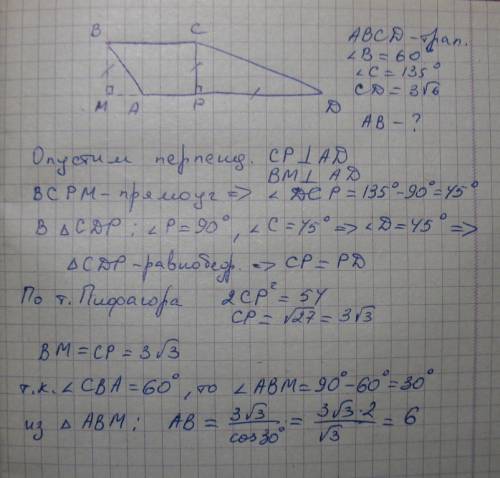 B C
M A P D
ABCD – трап.
∠B = 60°
∠C = 135°
CD = 3√6
AB – ?
Опустим перпенд. CP⊥AD
BM⊥AD
BCPM – прямоуг => ∠DCP = 135° – 90° = 45°
В △CDP: ∠P = 90°, ∠C = 45° => ∠D = 45° =>
△CDP – равнобедр. => CP = PD
По т. Пифагора 2CP² = 54
CP = √27 = 3√3
BM = CP = 3√3
т.к. ∠CBA = 60°, то ∠ABM = 90° – 60° = 30°
из △ABM: AB = 3√3/cos30° = 3√3·2/√3 = 6